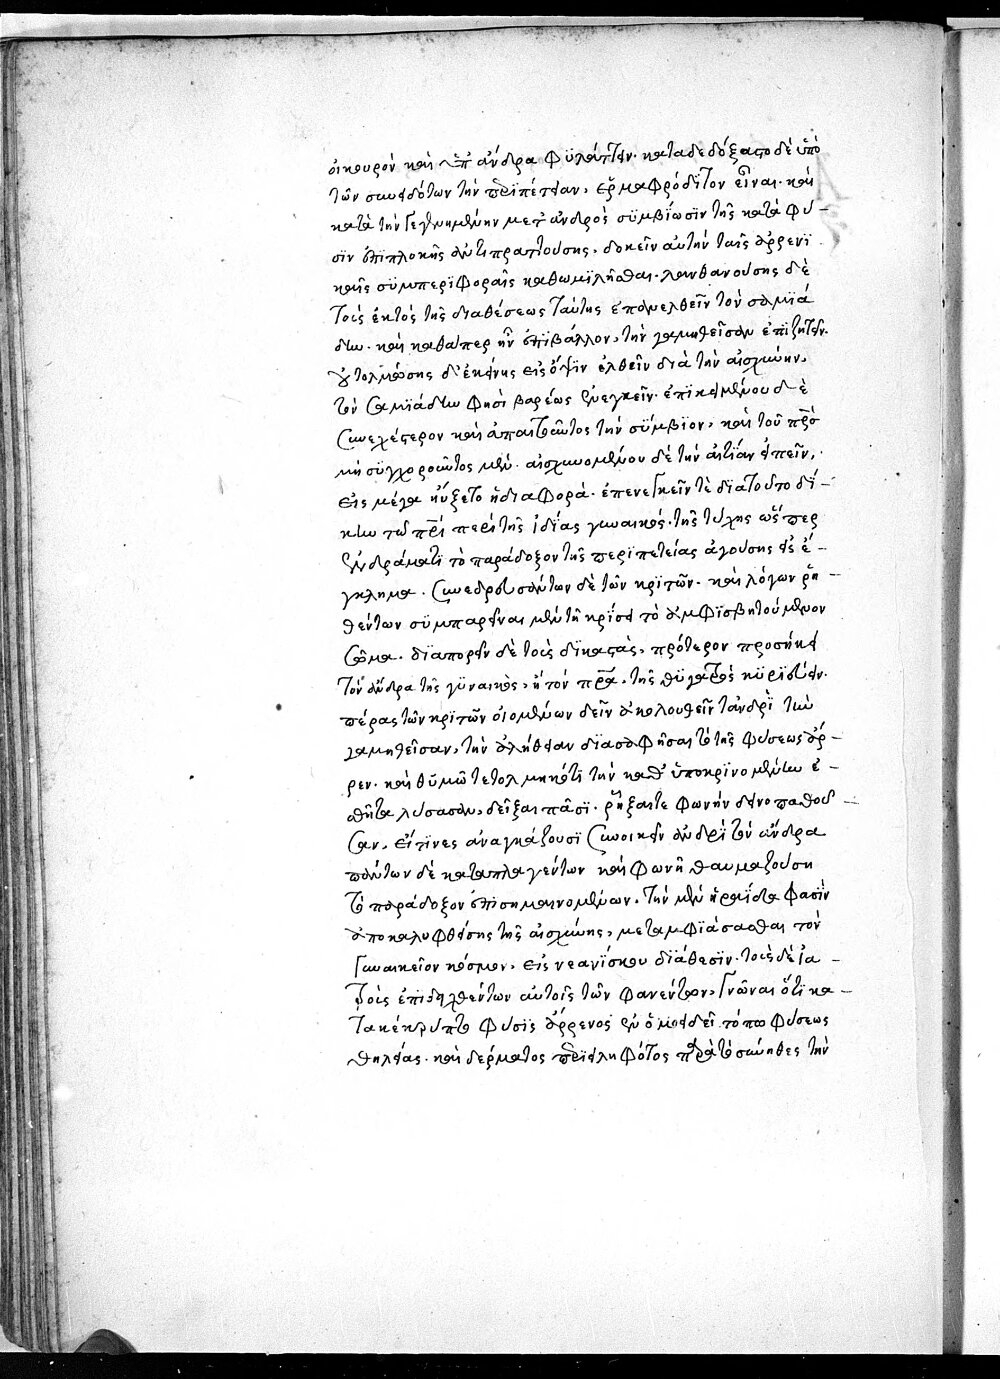 οἰκουρὸν καὶ ὕπανδρα φυλάττειν· κατεδοξάσθαι δὲ ὑπὸ
τῶν συνειδότων τὴν περιπέτειαν, ἑρμαφρόδιτον εἶναι· καὶ
κατὰ τὴν γεγενημένην μετ' ἀνδρὸς συμβίωσιν τῆς κατὰ φύ-
σιν ἐπιπλοκῆς ἀντιπραττούσης, δοκεῖν αὐτὴν ταῖς ἀρρενι
καῖς συμπεριφοραῖς καθωμιλῆσθαι· λανθανούσης δὲ
τοὺς ἐκτὸς τῆς διαθέσεως ταύτης ἐπανελθεῖν τὸν σαμιά
δην· καὶ καθάπερ ἦν ἐπιβάλλον, τὴν γαμηθεῖσαν ἐπιζητεῖν·
οὐ τολμώσης δ' ἐκείνης εἰς ὄψιν ἐλθεῖν διὰ τὴν αἰσχύνην,
τὸν σαμιάδην φησὶ βαρέως ἐνεγκεῖν· ἐπικειμένου δὲ
συνεχέστερον καὶ ἀπαιτοῦντος τὴν σύμβιον, καὶ τοῦ πρς
μὴ συγχωροῦντος μὲν· αἰσχυνομένου δὲ τὴν αἰτίαν εἰπεῖν,
εἰς μέγα ηὔξετο ἡ διαφορά· ἐπενεγκεῖν τὲ διατοῦτο δί-
κην τῶ πρι περὶ τῆς ἰδίας γυναικός· τῆς τύχης ὥσπερ
ἐν δράματι τὸ παράδοξον τῆς περιπετείας ἀγούσης εἰς ἔ-
γκλημα· συνεδρευσάντων δὲ τῶν κριτῶν· καὶ λόγων ῥη-
θέντων συμπαρεῖναι μὲν τῇ κρίσει τὸ ἀμφισβητούμενον
σῶμα· διαπορεῖν δὲ τοὺς δικαστὰς, πρότερον προσήκει
τὸν ἄνδρα τῆς γυναικὸς, ἢ τὸν πρα, τῆς θυγατρὸς κυριεύειν·
πέρας τῶν κριτῶν οἰομένων δεῖν ἀκολουθεῖν τἀνδρὶ τὴν
γαμηθεῖσαν, τὴν ἀλήθειαν διασαφῆσαι τὸ τῆς φύσεως ἄρ-
ρεν· καὶ θυμῶ τετολμηκότι τὴν καθ' ὑποκρινομένην ἐ-
σθῆτα λύσασαν, δεῖξαι πᾶσι· ῥῆξαί τε φωνὴν δεινοπαθοῦ-
σαν, εἴ τινες ἀναγκάζουσι συνοικεῖν ἀνδρὶ τὸν ἄνδρα
πάντων δὲ καταπλαγέντων καὶ φωνῇ θαυμαζούσῃ
τὸ παράδοξον ἐπισημαινομένων, τὴν μὲν ἡραΐδα φασὶν
ἀποκαλυφθείσης τῆς αἰσχύνης, μεταμφιάσασθαι τὸν
γυναικεῖον κόσμον, εἰς νεανίσκου διάθεσιν· τοὺς δὲ ἰα-
τροὺς ἐπιδειχθέντων αὐτοῖς τῶν φανέντων, γνῶναι ὅτι κα-
τακέκρυπτο φύσις ἄρρενος ἐν ὠμοειδεῖ τόπω φύσεως
θηλείας· καὶ δέρματος περιειληφότος παρὰ τὸ σύνηθες τὴν